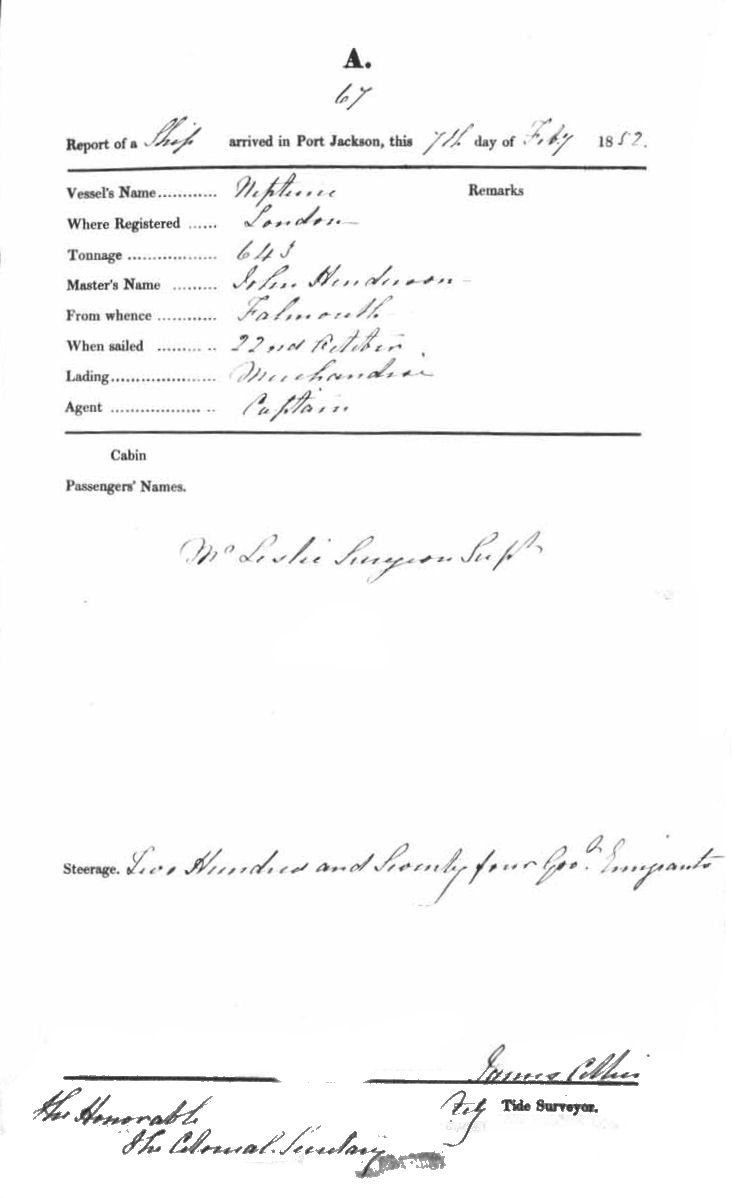 A.
67
Report of a Ship arrived in Port Jackson, this 7th day of Feby 1852.
Vessel's Name............ Neptune Remarks
Where Registered ...... London
Tonnage .................. 643
Master's Name ......... John Henderson
From whence ............ Falmouth
When sailed ......... .. 22nd October
Lading..................... Merchandise
Agent .................. .. Captain
Cabin
Passengers' Names.
Mr Leslie Surgeon Supt
Steerage. Two Hundred and Seventy four Govt. Emigrants
James
Tide Surveyor.
The Honorable
The Colonial Secretary